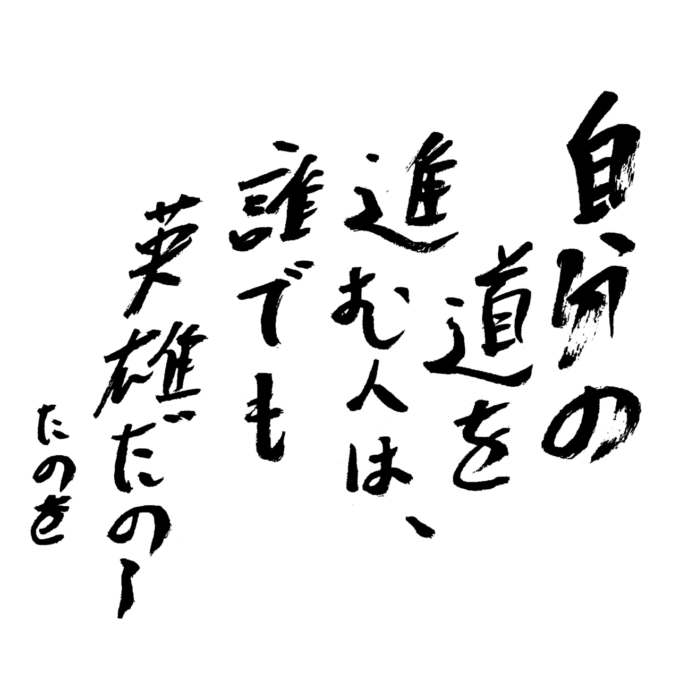 自分の
道を
進む人は、
誰でも
英雄だのー
たのを